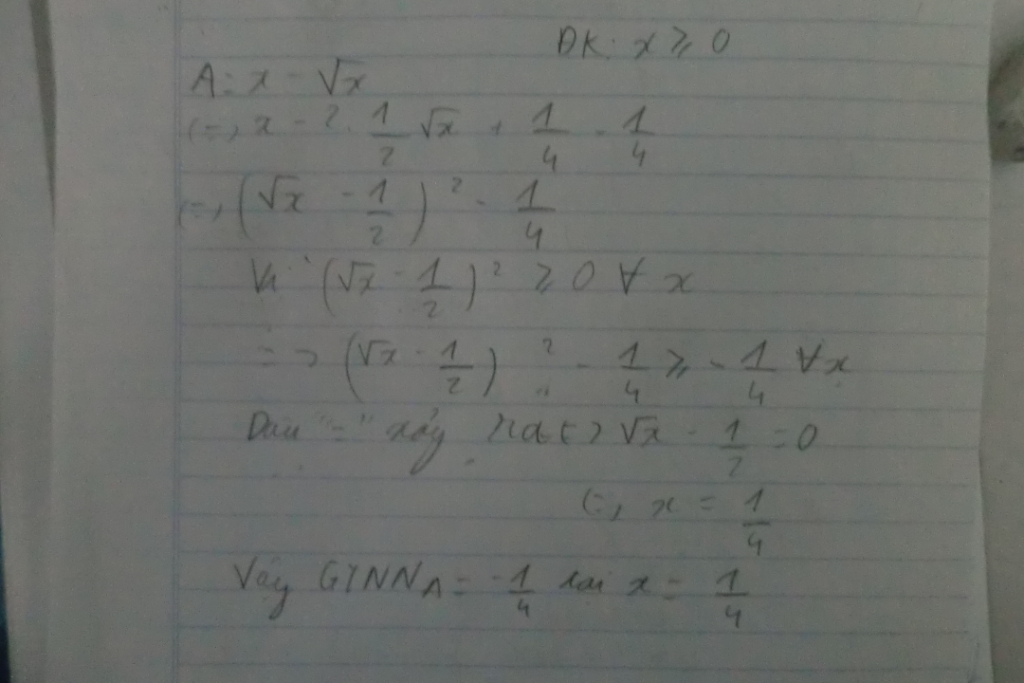 ĐK: x ≥ 0
A = x - √x
<=> x - 2. 1/2 √x + 1/4 - 1/4
<=> (√x - 1/2)² - 1/4
Vì (√x - 1/2)² ≥ 0 ∀ x
=> (√x - 1/2)² - 1/4 ≥ - 1/4 ∀x
Dấu "=" xảy ra <=> √x - 1/2 = 0
<=> x = 1/4
Vậy GTNN A = -1/4 x = 1/4